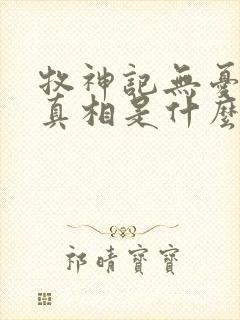 牧神記無憂
真相是什麼
祁晴寶寶